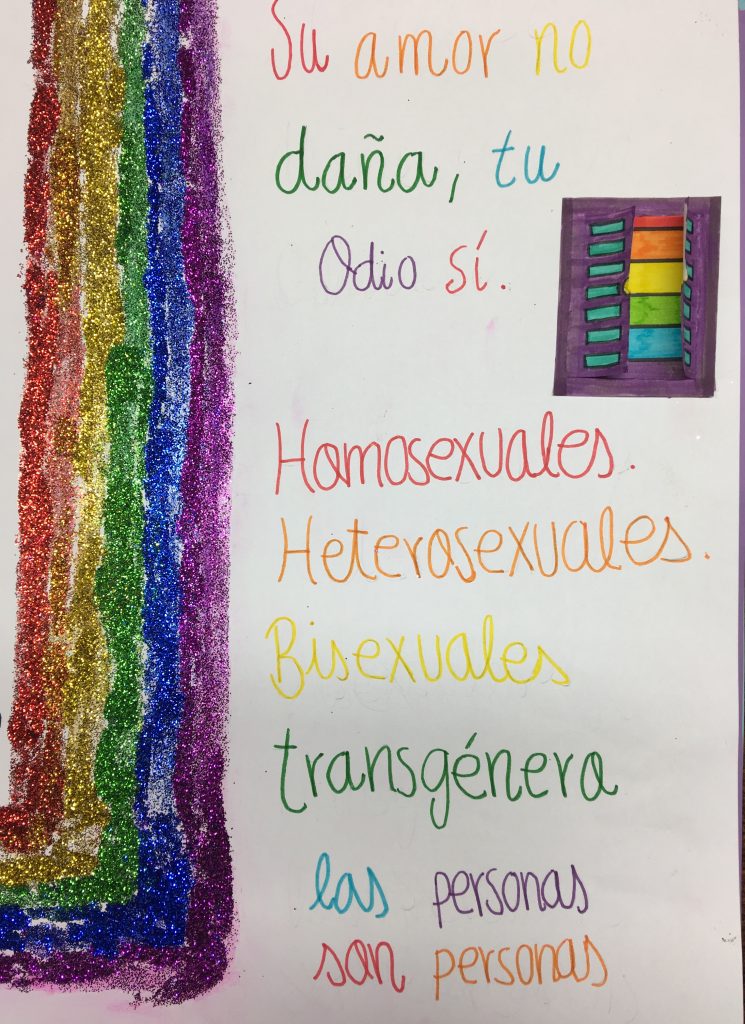 Su amor no
daña, tu
Odio sí.
Homosexuales.
Heterosexuales.
Bisexuales
transgénero
las personas
son personas